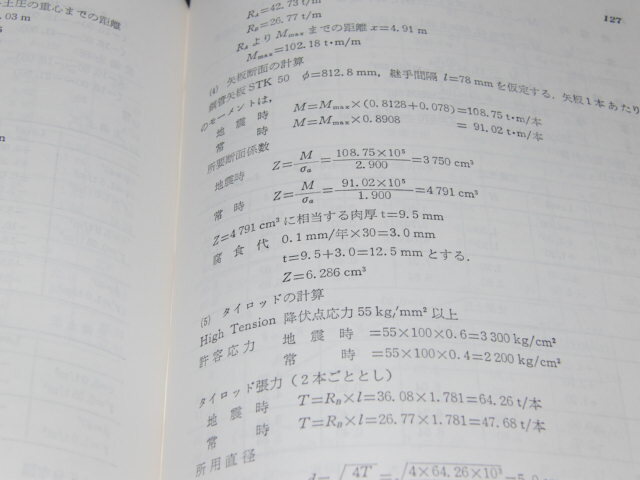 土圧の重心までの距離
.03 m
127
R_A=42.73 t/m
R_B=26.77 t/m
R_A より M_max までの距離 x=4.91 m
M_max=102.18 t・m/m
(4) 矢板断面の計算
鋼管矢板 STK 50 φ=812.8 mm, 継手間隔 l=78 mm を仮定する. 矢板1本あたり
のモーメントは,
地震時 M=M_max×(0.8128+0.078)=108.75 t・m/本
常時 M=M_max×0.8908 = 91.02 t・m/本
所要断面係数
地震時 Z=M/σ_a=108.75×10⁵/2.900=3 750 cm³
常時 Z=M/σ_a=91.02×10⁵/1.900=4 791 cm³
Z=4 791 cm³ に相当する肉厚 t=9.5 mm
腐食代 0.1 mm/年×30=3.0 mm
t=9.5+3.0=12.5 mm とする.
Z=6.286 cm³
(5) タイロッドの計算
High Tension 降伏点応力 55 kg/mm² 以上
許容応力 地震時 =55×100×0.6=3 300 kg/cm²
常時 =55×100×0.4=2 200 kg/cm²
タイロッド張力 (2本ごととし)
地震時 T=R_B×l=36.08×1.781=64.26 t/本
常時 T=R_B×l=26.77×1.781=47.68 t/本
所用直径
d=√4T=√4×64.26×10³